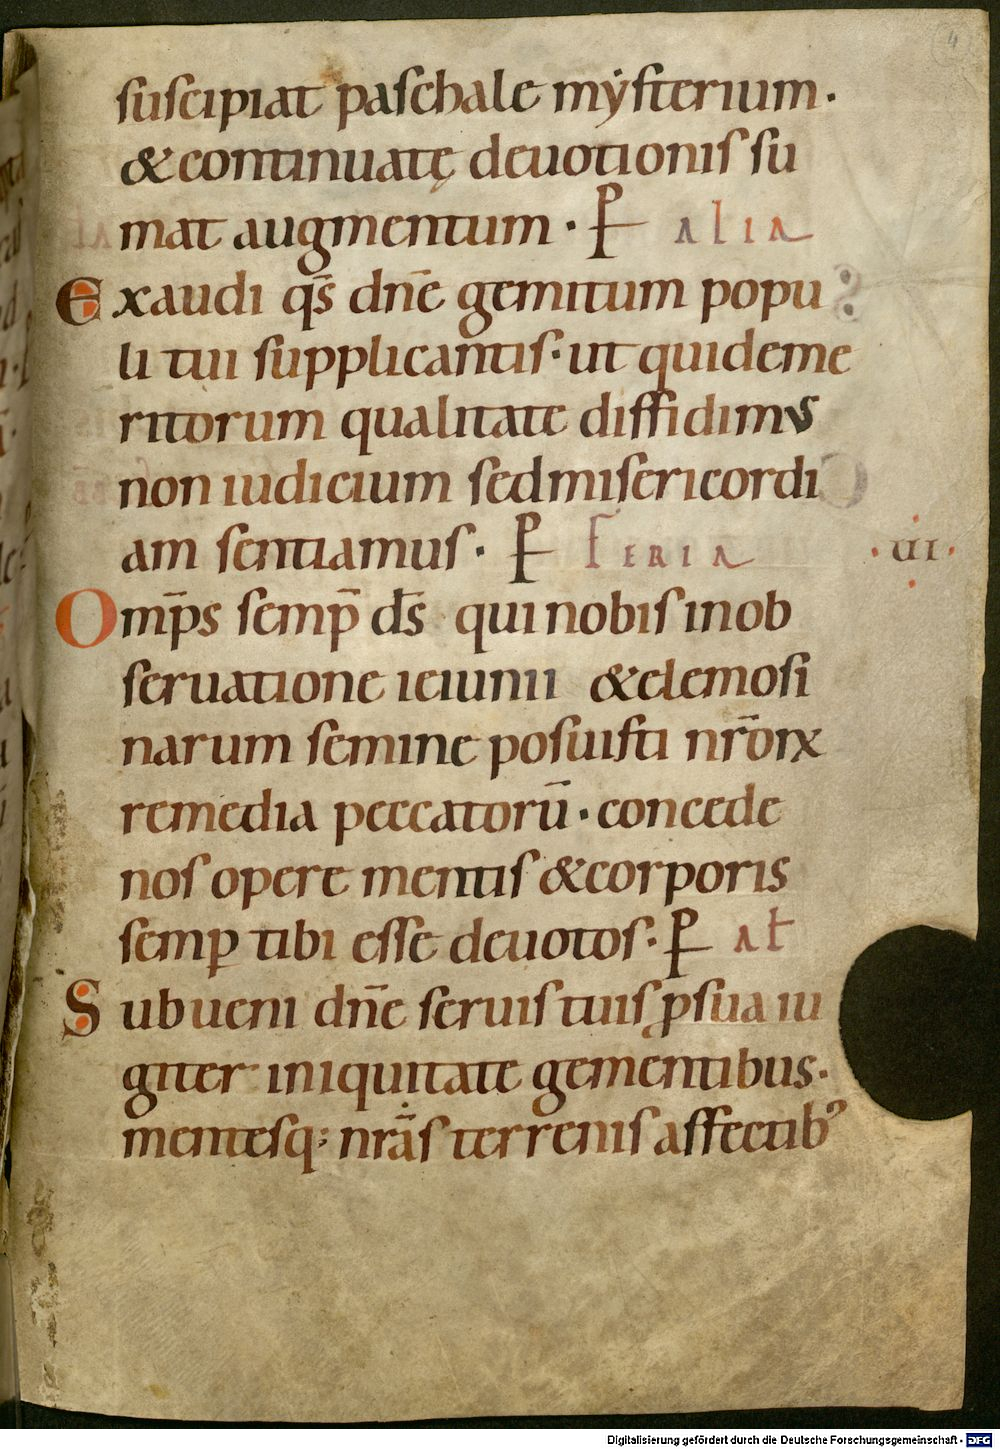 4
suscipiat paschale mẏsterium.
&continuatę deuotionis su
mat augmentum · P alia
Exaudi qs̄ dn̄e gemitum popu
li tui supplicantis· ut quideme
ritorum qualitate diffidimus
non iudicium sedmisericordi
am sentiamus· P Feria ·uii·
Omp̄s semp̄ ds̄ quinobis inob
seruatione ieiunii &elemosi
narum semine posuisti nr̄orꝝ
remedia peccatorū· concede
nos opere mentis &corporis
semꝑ tibi esse deuotos· P al̄
Subueni dn̄e seruis tuis ꝓsua iu
giter iniquitate gementibus·
mentesq; nr̄as terrenis affectibꝰ
Digitalisierung gefördert durch die Deutsche Forschungsgemeinschaft - DFG